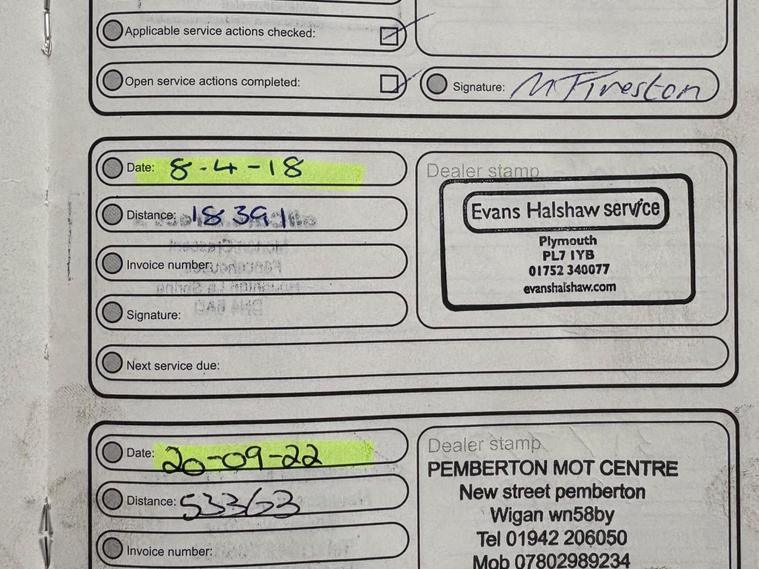 Applicable service actions checked:
Open service actions completed:
Signature:
Date: 8-4-18
Distance: 18391
Invoice number:
Signature:
Next service due:
Dealer stamp
Evans Halshaw service
Plymouth
PL7 1YB
01752 340077
evanshalshaw.com
Date: 20-09-22
Distance: 53363
Invoice number:
Dealer stamp
PEMBERTON MOT CENTRE
New street pemberton
Wigan wn58by
Tel 01942 206050
Mob 07802989234